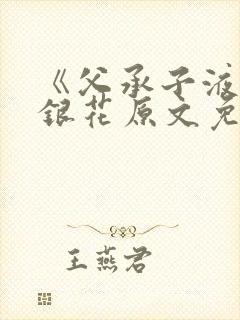 《父承子液
銀花原文免
王燕君